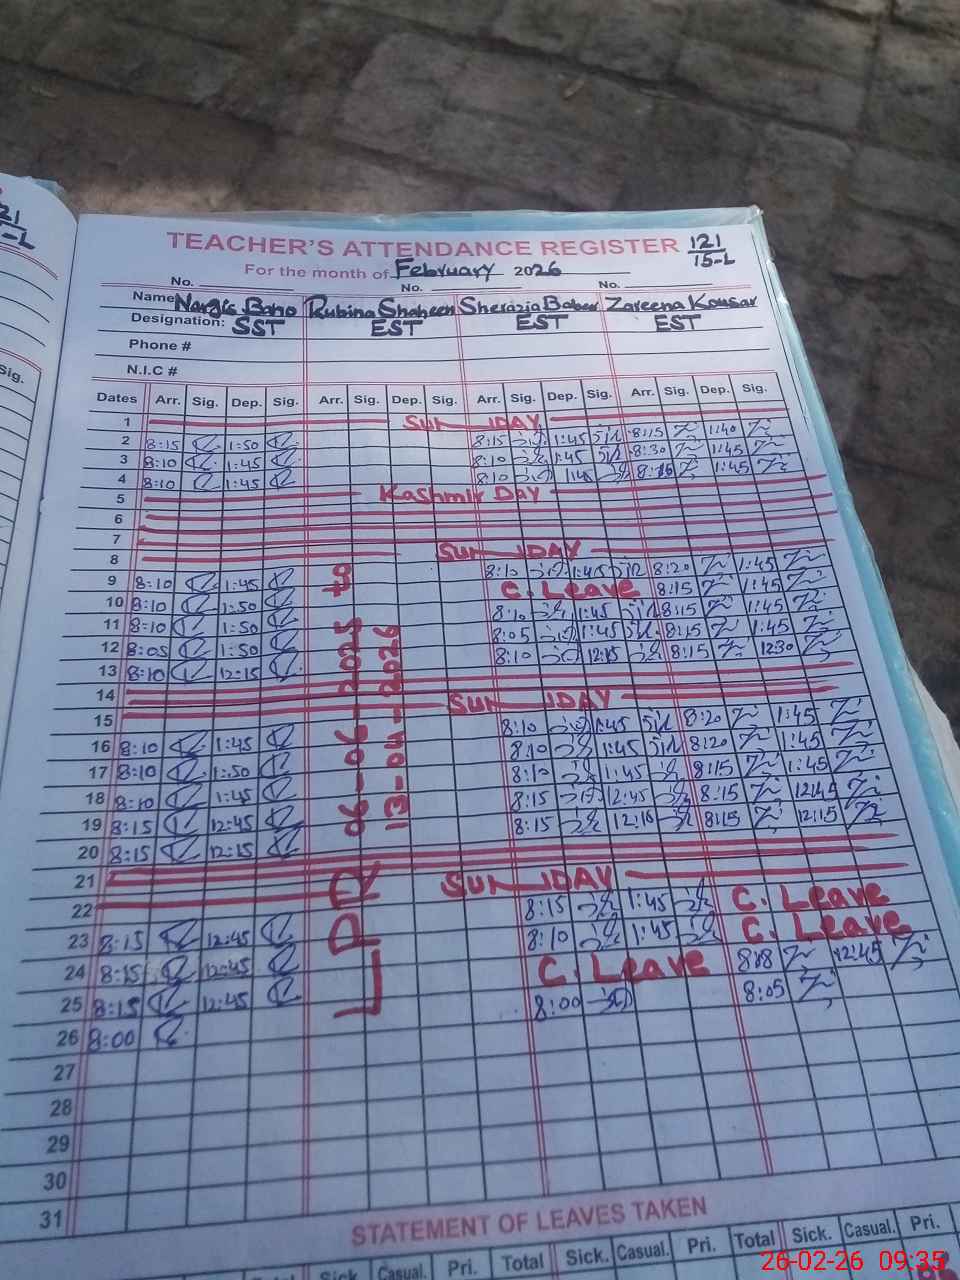 121
15-L
TEACHER'S ATTENDANCE REGISTER
For the month of February 2026
No. No. No.
Name Nargis Bano Rubina Shaheen Sherazia Baber Zareena Kousar
Designation: SST EST EST EST
Phone #
N.I.C #
Sig.
Dates Arr. Sig. Dep. Sig. Arr. Sig. Dep. Sig. Arr. Sig. Dep. Sig. Arr. Sig. Dep. Sig.
1 SUNDAY
2 8:15 1:50 8:15 1:45 8:15 1:40
3 8:10 1:45 8:10 1:45 8:30 1:45
4 8:10 1:45 8:10 1:45 8:15 1:45
5 Kashmir DAY
6
7
8 SUNDAY
9 8:10 1:45 8:10 1:45 8:20 1:45
10 8:10 1:50 C. Leave 8:15 1:45
11 8:10 1:50 8:10 1:45 8:15 1:45
12 8:05 1:50 8:05 1:45 8:15 1:45
13 8:10 12:15 8:10 12:15 8:15 12:30
14
15 SUNDAY
16 8:10 1:45 8:10 1:45 8:20 1:45
17 8:10 1:50 8:10 1:45 8:20 1:45
18 8:10 1:45 8:10 1:45 8:15 1:45
19 8:15 12:45 8:15 12:45 8:15 12:45
20 8:15 12:15 8:15 12:10 8:15 12:15
21
22 SUNDAY
23 8:15 12:45 8:15 1:45 C. Leave
24 8:15 12:45 8:10 1:45 C. Leave
25 8:15 12:45 C. Leave 8:08 12:45
26 8:00 8:00 8:05
27
28
29
30
31
LPR 06-06-2025 to
13-04-2026
STATEMENT OF LEAVES TAKEN
Sick. Casual. Pri. Total Sick. Casual. Pri. Total Sick. Casual. Pri.
26-02-26 09:35